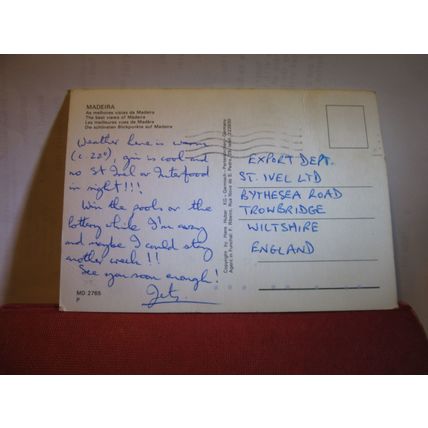 MADEIRA
As melhores vistas da Madeira
The best views of Madeira
Les meilleures vues de Madère
Die schönsten Blickpunkte auf Madeira
Weather here is warm
(c. 22°), gin is cool and
no St Ivel or Interfood
in sight!!!
Win the pools or the
lottery while I'm away
and maybe I could stay
another week!!
See you soon enough!
MD 2765
P
Copyright by Hans Huber KG Germany
Agent in Funchal: F. Ribeiro, Rua Nova de S. Pedro
EXPORT DEPT.
ST. IVEL LTD
BYTHESEA ROAD
TROWBRIDGE
WILTSHIRE
ENGLAND